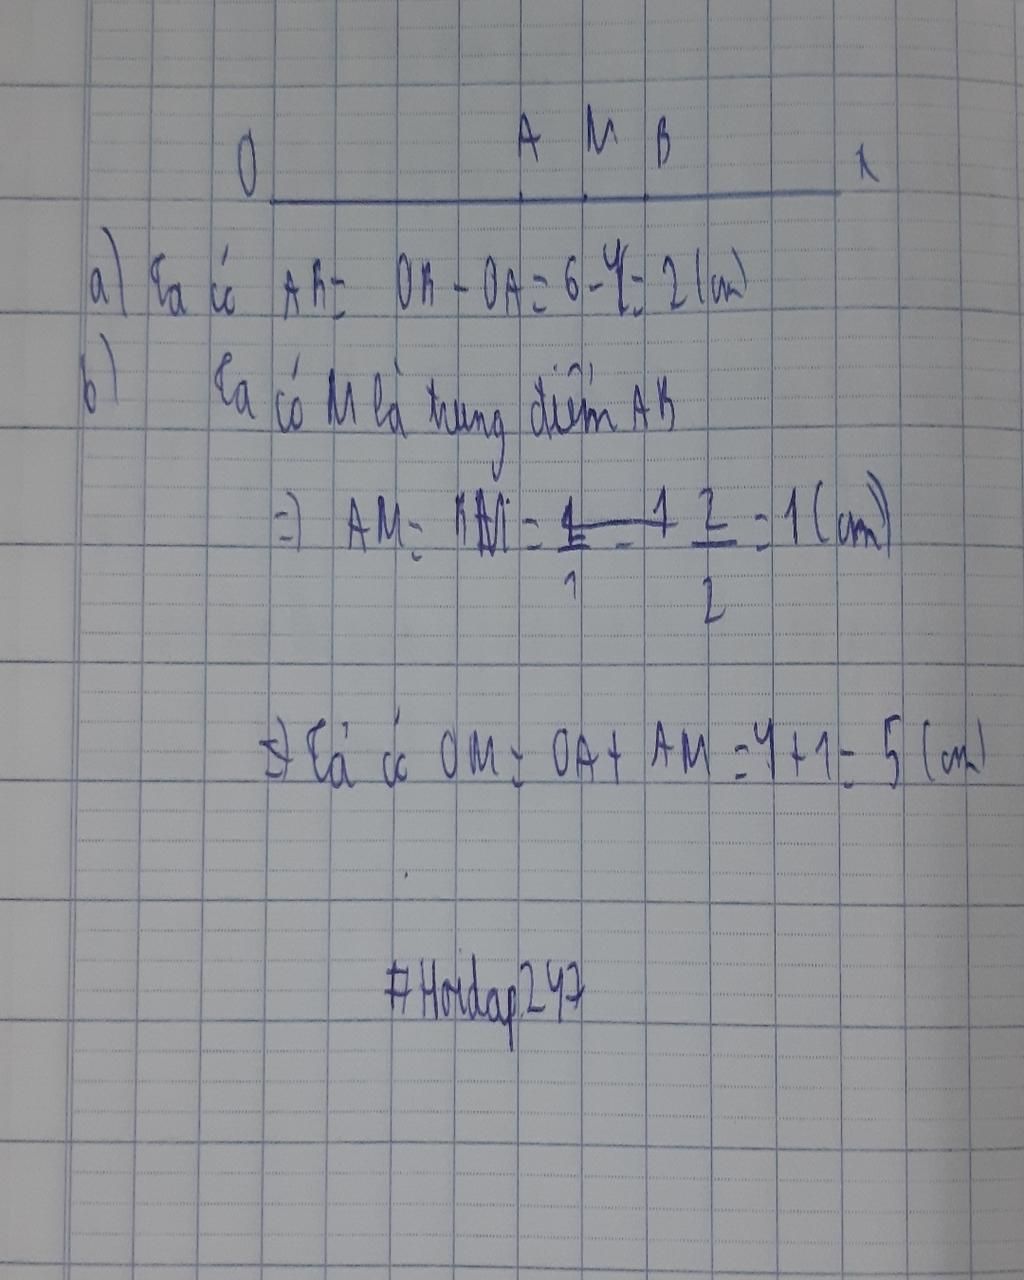 O A M B x
a) Ta có AB = OB - OA = 6 - 4 = 2 (cm)
b) Ta có M là trung điểm AB
=> AM = BM = 2/2 = 1 (cm)
=> Ta có OM = OA + AM = 4 + 1 = 5 (cm)
#Hoidap247